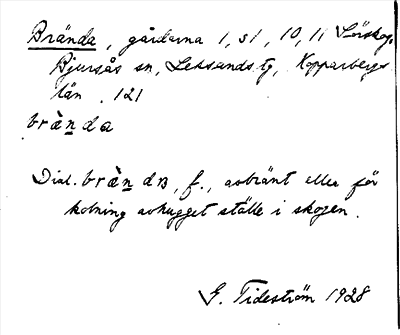 Brända, gårdarna 1, 51, 10, 11 Sörskog,
Bjursås sn, Leksands tg, Kopparbergs
län. 121
brända
Dial. brända, f., avbränt eller för
kolning avhugget ställe i skogen.
G. Tideström 1928